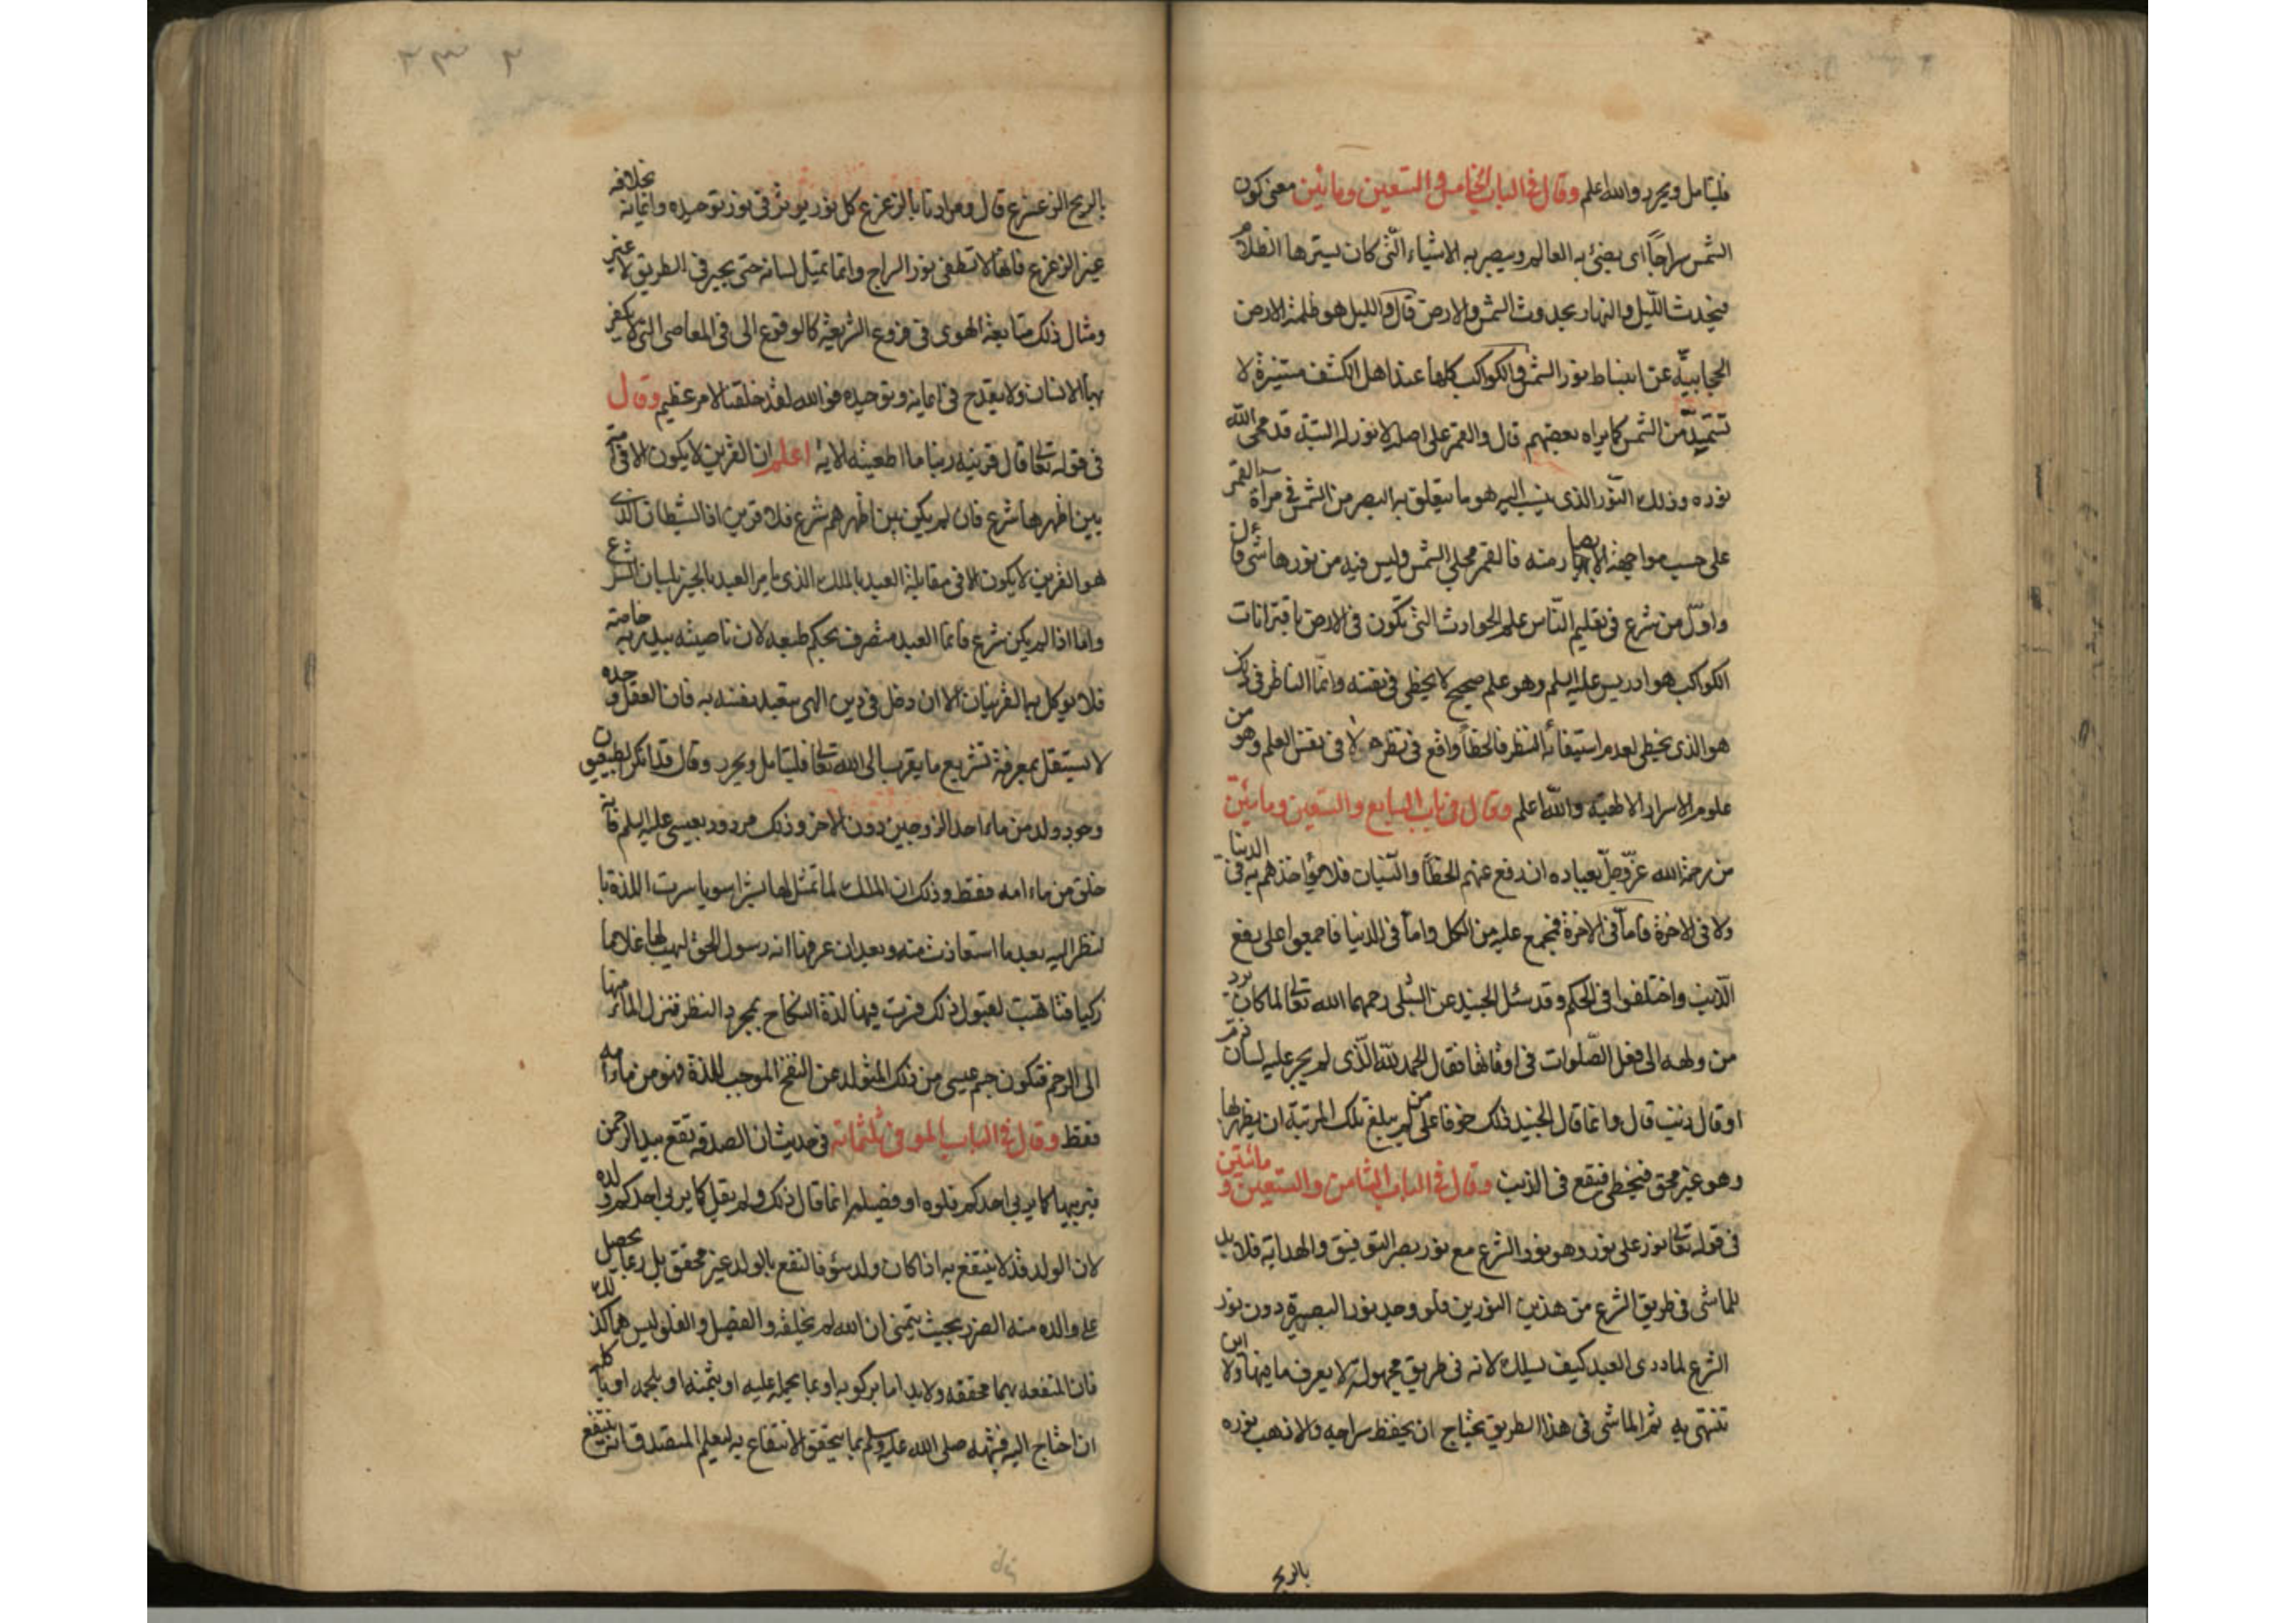 فليتامل ويحرر والله اعلم وقال في الباب الخامس والتسعين ومائتين معنى كون
الشمس سراجا اى يضئ به العالم ويبصر به الاشياء التى كان يسترها الظلام
فيحدث الليل والنهار بحدوث الشمس والارض قال والليل هو ظلمة الارض
الحجابية عن انبساط نور الشمس والكواكب كلها عند اهل الكشف مستنيرة لا
تستمد من الشمس كما يراه بعضهم قال والقمر على اصله لا نور له البتة قد محى الله
نوره وذلك النور الذى ينسب اليه هو ما يتعلق به البصر من الشمس في مرآة القمر
على حسب مواجهة الابصار منه فالقمر مجلى الشمس وليس فيه من نورها شى قال
واول من شرع في تعليم الناس علم الحوادث التى تكون في الارض باقترانات
الكواكب هو ادريس عليه السلم وهو علم صحيح لا يخطى في نفسه وانما الناظر في ذلك
هو الذى يخطى لعدم استيفائه النظر فالخطأ واقع في نظره لا في نفس العلم وهو من
علوم الاسرار الالهية والله اعلم وقال في باب السابع والتسعين ومايئين
من رحمة الله عز وجل بعباده ان رفع عنهم الخطأ والنسيان فلا يؤاخذهم به في الدنيا
ولا في الاخرة فاما في الاخرة فمجمع عليه من الكل واما في الدنيا فاجمعوا على رفع
الذنب واختلفوا في الحكم وقد سئل الجنيد عن الشبلى رحمهما الله تعالى لما كان يرد
من ولهه الى فعل الصلوات في اوقاتها فقال الحمد لله الذى لم يجر عليه لسان ذم
او قال ذنب قال وانما قال الجنيد ذلك خوفا على من لم يبلغ تلك المرتبة ان يظهر بها
وهو غير محق فيخطى فيقع في الذنب وقال في الباب الثامن والتسعين ومائتين
في قوله تعالى نور على نور وهو نور الشرع مع نور بصر التوفيق والهداية فلا بد
للماشى في طريق الشرع من هذين النورين فلو وجد نور البصيرة دون نور
الشرع لما درى العبد كيف يسلك لانه في طريق مجهولة لا يعرف ما فيها ولا اين
تنتهى به ثم الماشى في هذا الطريق يحتاج ان يحفظ سراجه والا ذهب نوره
بالريح
بالريح الزعزع قال ومرادنا بالزعزع كل نور يوثر في نور توحيده وايمانه بخلافه
غير الزعزع فانها لا تطفى نور السراج وانما تميل لسانه حتى يحير في الطريق لا غير
ومثال ذلك متابعة الهوى في فروع الشريعة كالوقوع الى في المعاصى التى لا يكفر
بها الانسان ولا يقدح في ايمانه وتوحيده فوالله لقد خلقنا لامر عظيم وقال
في قوله تعالى قال قرينه ربنا ما اطغيته الاية اعلم ان القرين لا يكون الا في امة
بين اظهرها شرع فان لم يكن بين اظهرهم شرع فلا قرين اذ الشيطان الذى
هو القرين لا يكون الا في مقابلة العبد بالملك الذى يامر العبد بالخير بلسان الشرع
واما اذا لم يكن شرع فانما العبد متصرف بحكم طبعه لان ناصيته بيد ربه خاصة
فلا يوكل بها القرينان الا ان دخل في دين الهى يتعبد نفسه به فان العقل وحده
لا يستقل بمعرفة تشريع ما يقرب الى الله تعالى فليتامل ويحرر وقال قد انكر الطبيعيون
وجود ولد من ماء احد الزوجين دون الاخر وذلك مردود بعيسى عليه السلم فانه
خلق من ماء امه فقط وذلك ان الملك لما تمثل لها بشرا سويا سرت اللذة با
لنظر اليه بعد ما استعاذت منه وبعد ان عرفها انه رسول الحق ليهب لها غلاما
زكيا فتاهبت لقبول ذلك فسرت فيها لذة النكاح بمجرد النظر فنزل الماء منها
الى الرحم فتكون جسم عيسى من ذلك المتولد عن النفخ الموجب للذة فهو من ماء امه
فقط وقال في الباب الموفى ثلثمائة في حديث ان الصدقة تقع بيد الرحمن
فيربيها كما يربى احدكم فلوه او فصيله انما قال ذلك ولم يقل كما يربى احدكم ولده
لان الولد قد لا ينتفع به اذا كان ولد سؤ فالنفع بالولد غير محقق بل ربما يحصل
على والده منه الضرر بحيث يتمنى ان الله لم يخلقه والفصيل والفلو ليس هما كذلك
فان المنفعه بهما محققه ولا بد اما بركوبه او بما يحمله عليه او بثمنه او بلحمه او ياكله
ان احتاج اليه فشبهه صلى الله عليه وسلم بما يتحقق الانتفاع به ليعلم المتصدق انه ينتفع